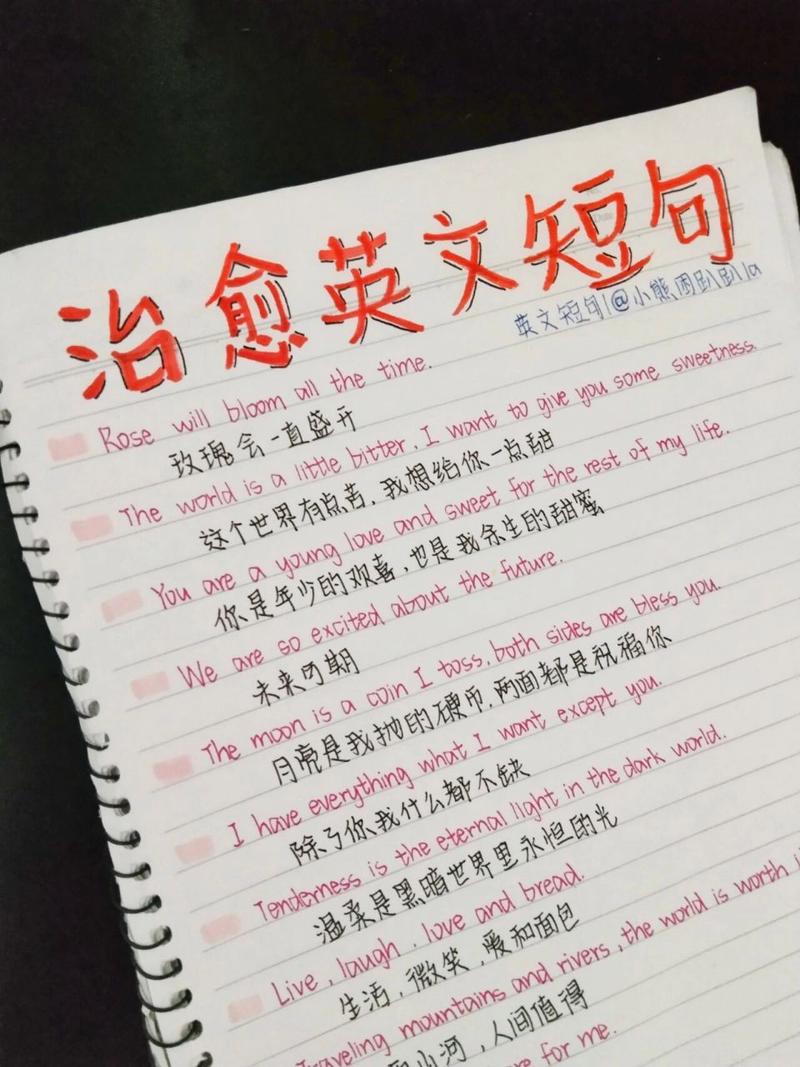 治愈英文短句
英文短句|@小熊困趴趴la
Rose will bloom all the time.
玫瑰会一直盛开
The world is a little bitter, I want to give you some sweetness.
这个世界有点苦,我想给你一点甜
You are a young love and sweet for the rest of my life.
你是年少的欢喜,也是我余生的甜蜜
We are so excited about the future.
未来可期
The moon is a coin I toss, both sides are bless you.
月亮是我抛的硬币,两面都是祝福你
I have everything what I want except you.
除了你我什么都不缺
Tenderness is the eternal light in the dark world.
温柔是黑暗世界里永恒的光
Live, laugh, love and bread.
生活,微笑,爱和面包
Traveling mountains and rivers, the world is worth
山河,人间值得
for me.